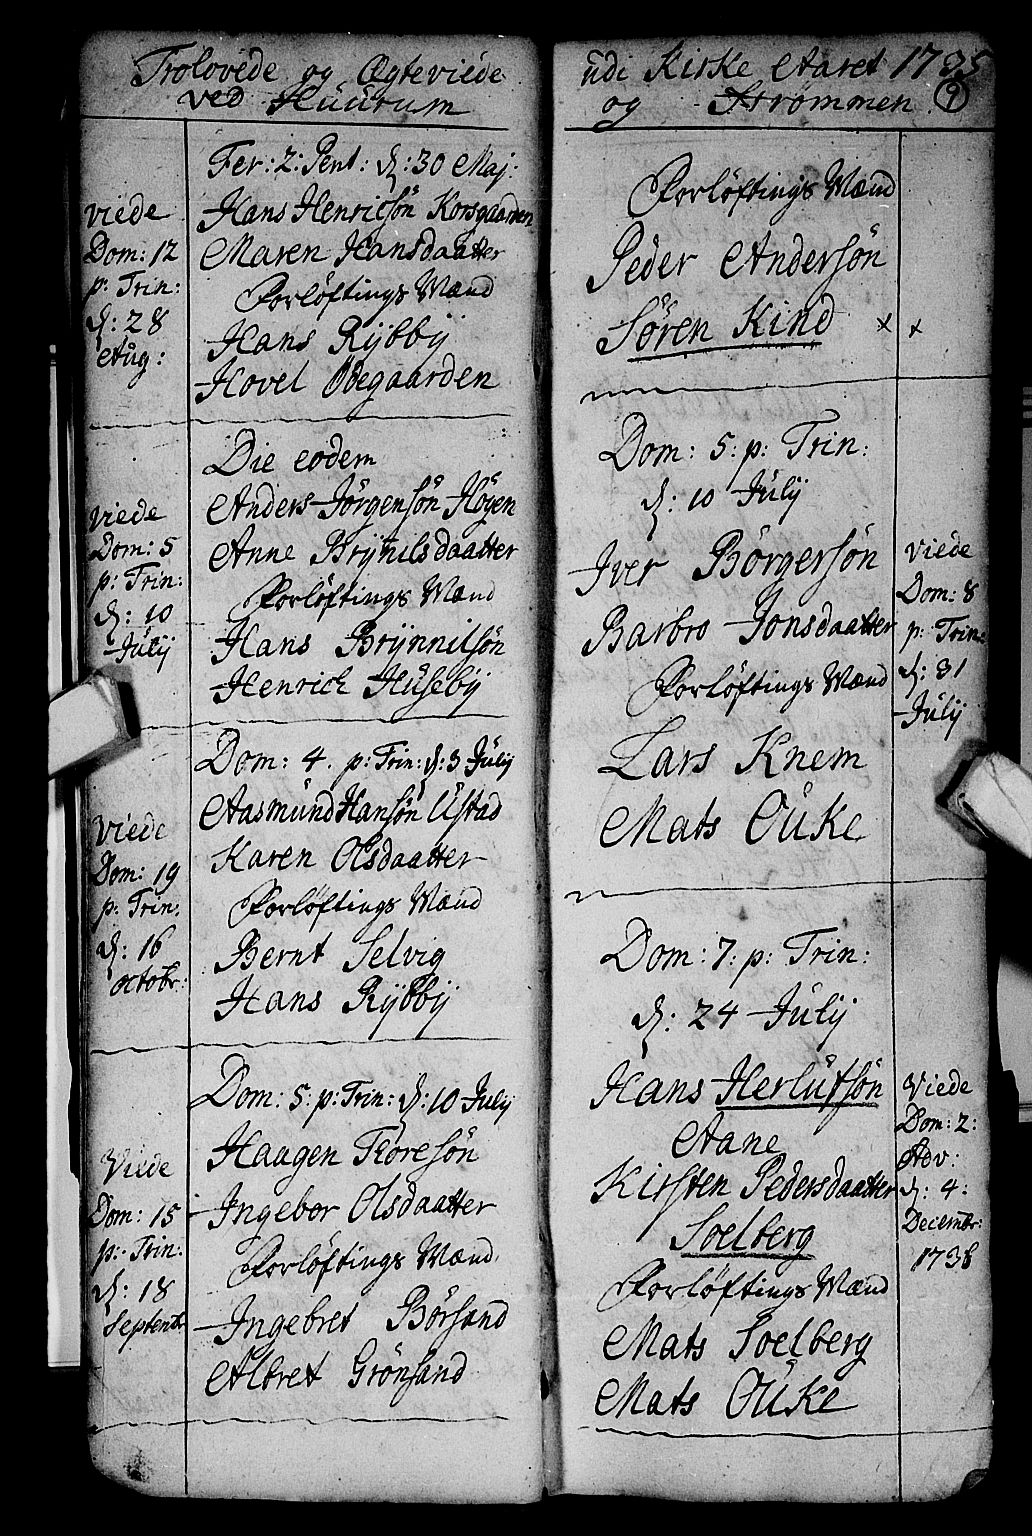 Trolovede og Ægteviede
ved Huurum
viede
Dom: 12
p: Trin:
d: 28
Aug:
Fer: 2: Pent: d: 30 Maj:
Hans Henricsön Korsgaarden
Maren Hansdaatter
Forlöftings Mænd
Hans Rÿbbÿ
Hovel Ödegaarden
viede
Dom: 5
p: Trin:
d: 10
Julÿ
Die eodem
Anders Jörgensön Höyen
Anne Brÿnilsdaatter
Forlöftings Mænd
Hans Brÿnnilsön
Henrich Husebÿ
viede
Dom: 19
p: Trin:
d: 16
octobr:
Dom: 4. p: Trin: d: 3 Julÿ
Aasmund Hansön Ustad
Karen Olsdaatter
Forlöftings Mænd
Bernt Selvig
Hans Rÿbbÿ
Viede
Dom: 15
p: Trin:
d: 18
Septembr
Dom: 5: p: Trin: d: 10 Julÿ
Haagen Toresön
Ingebor Olsdaatter
Forlöftings Mænd
Ingebret Börsand
Albret Grönsand
udi Kirke Aaret 1735
og Strömmen 9
Forlöftings Mænd
Peder Andersön
Sören Kind x x
Dom: 5: p: Trin:
d: 10 Julÿ
Iver Börgersön
Barbro Jonsdaatter
Forlöftings Mænd
Lars Knem
Mats Ouke
viede
Dom: 8
p: Trin:
d: 31
Julÿ
Dom: 7: p: Trin:
d: 24 Julÿ
Hans Herlufsön
Aane
Kirsten Pedersdaatter
Soelberg
Forlöftings Mænd
Mats Soelberg
Mats Ouke
Viede
Dom: 2:
Adv:
d: 4:
Decembr: